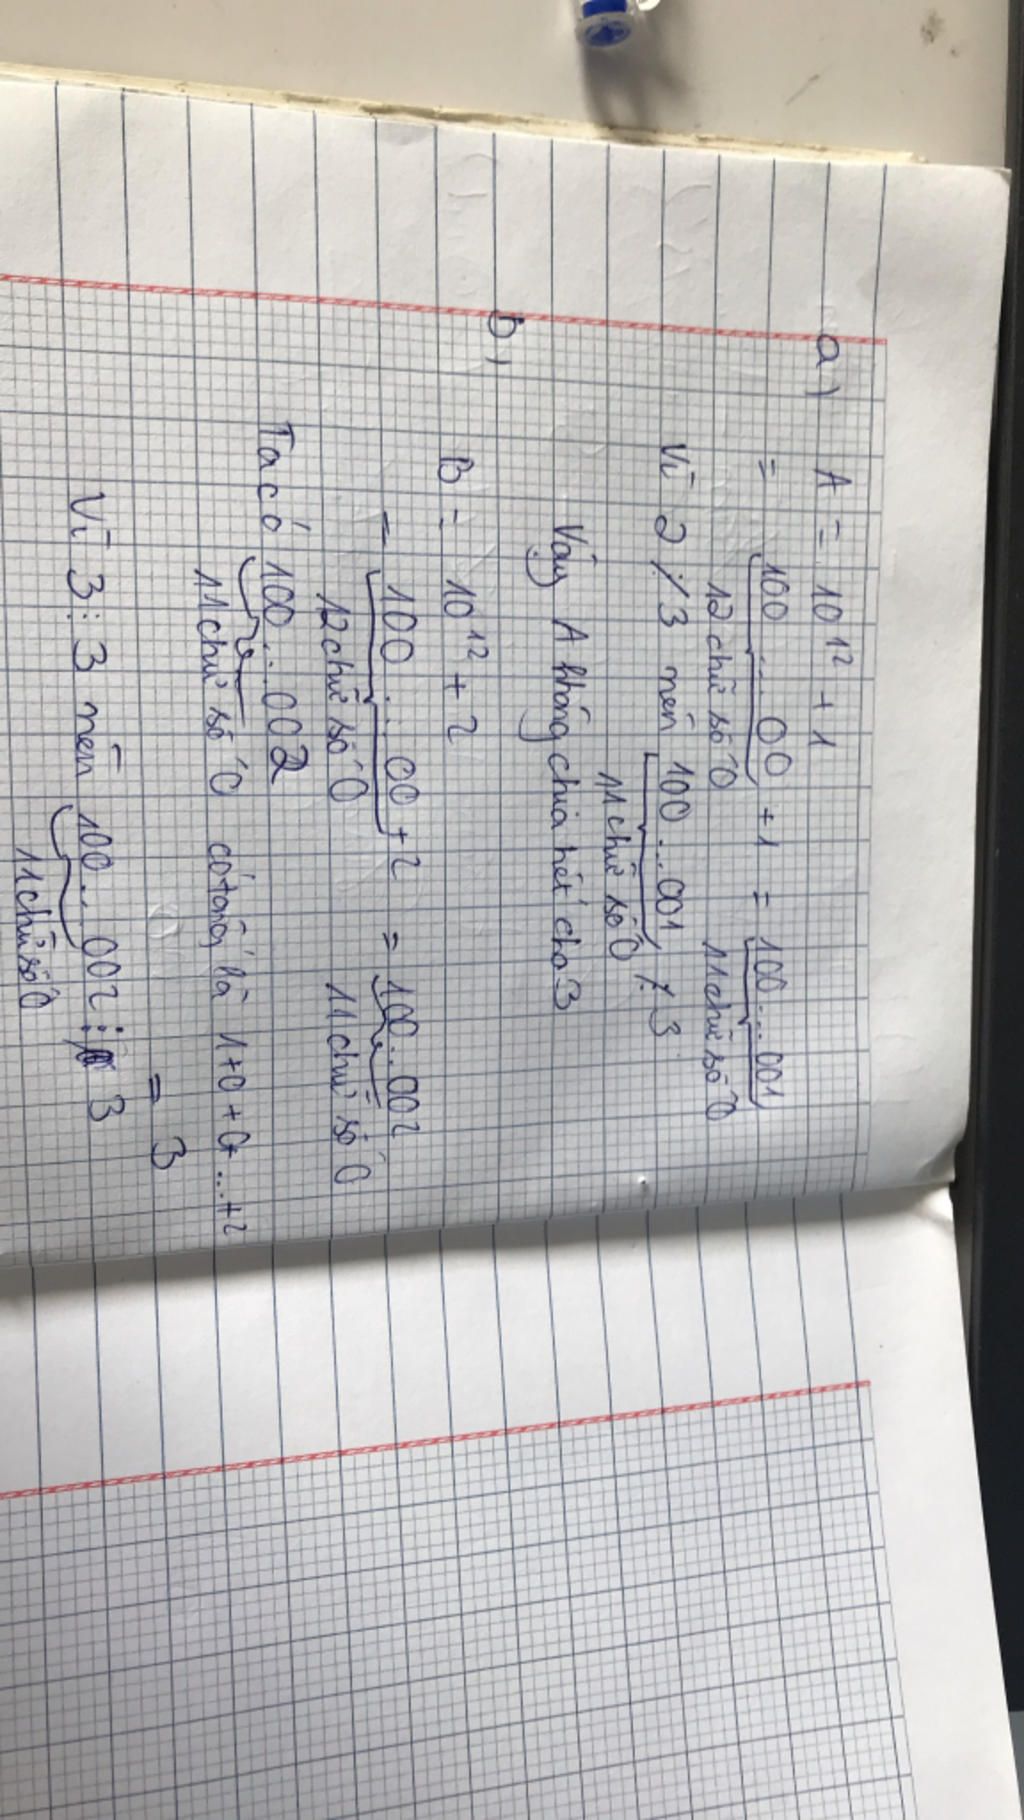 a) A = 10¹² + 1
= 100...00 + 1 = 100...001
12 chữ số 0 11 chữ số 0
Vì 2 ⋮̸ 3 nên 100...001 ⋮̸ 3
11 chữ số 0
Vậy A không chia hết cho 3
b) B = 10¹² + 2
= 100...00 + 2 = 100...002
12 chữ số 0 11 chữ số 0
Ta có 100...002
11 chữ số 0 có tổng là 1+0+0+...+2
= 3
Vì 3 ⋮ 3 nên 100...002 ⋮ 3
11 chữ số 0